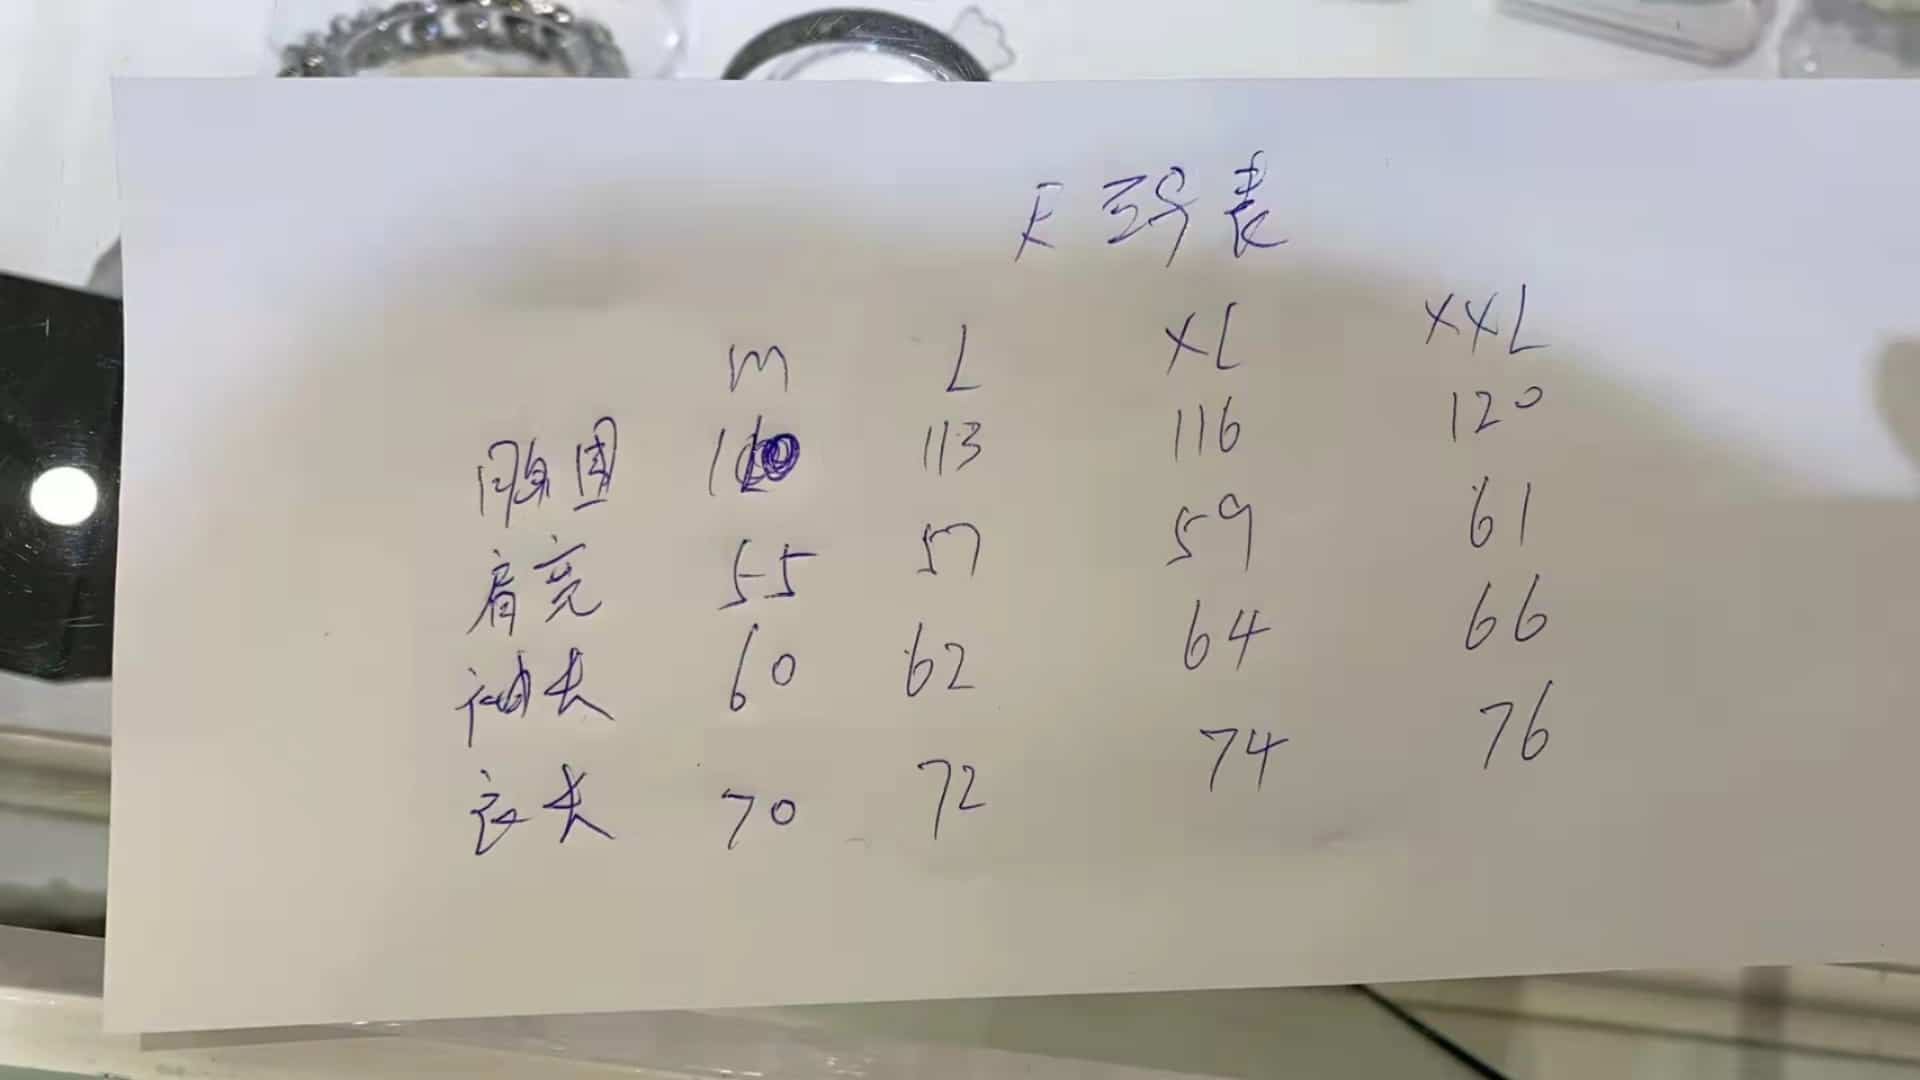 尺码表
M L XL XXL
胸围 113 116 120
肩宽 55 57 59 61
袖长 60 62 64 66
衣长 70 72 74 76